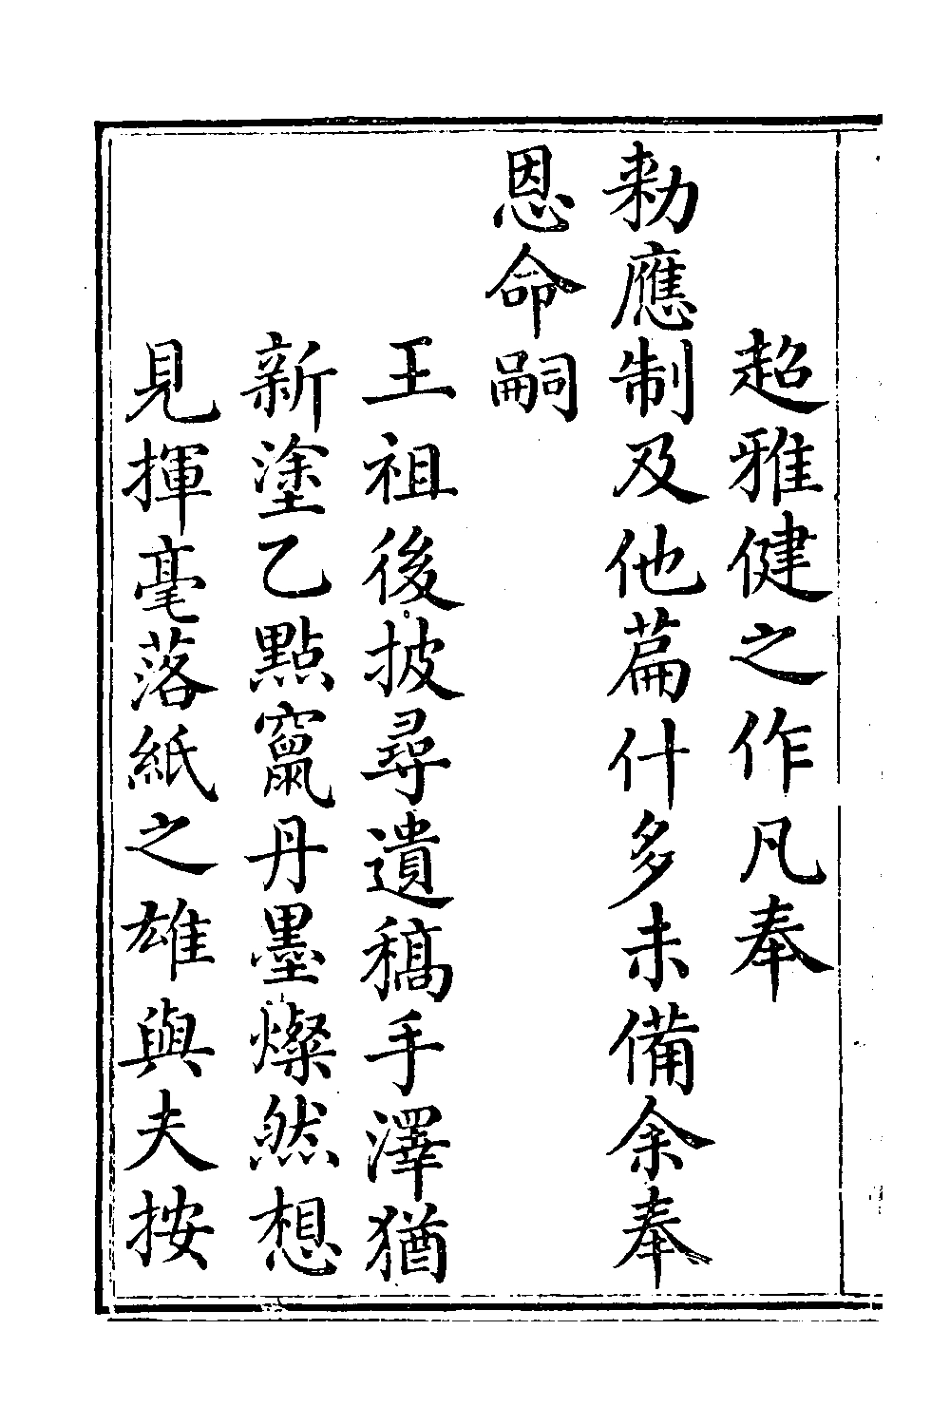 超雅健之作凡奉
勑應制及他篇什多未備余奉
恩命嗣
王祖後披尋遺稿手澤猶
新塗乙點竄丹墨燦然想
見揮毫落紙之雄與夫按